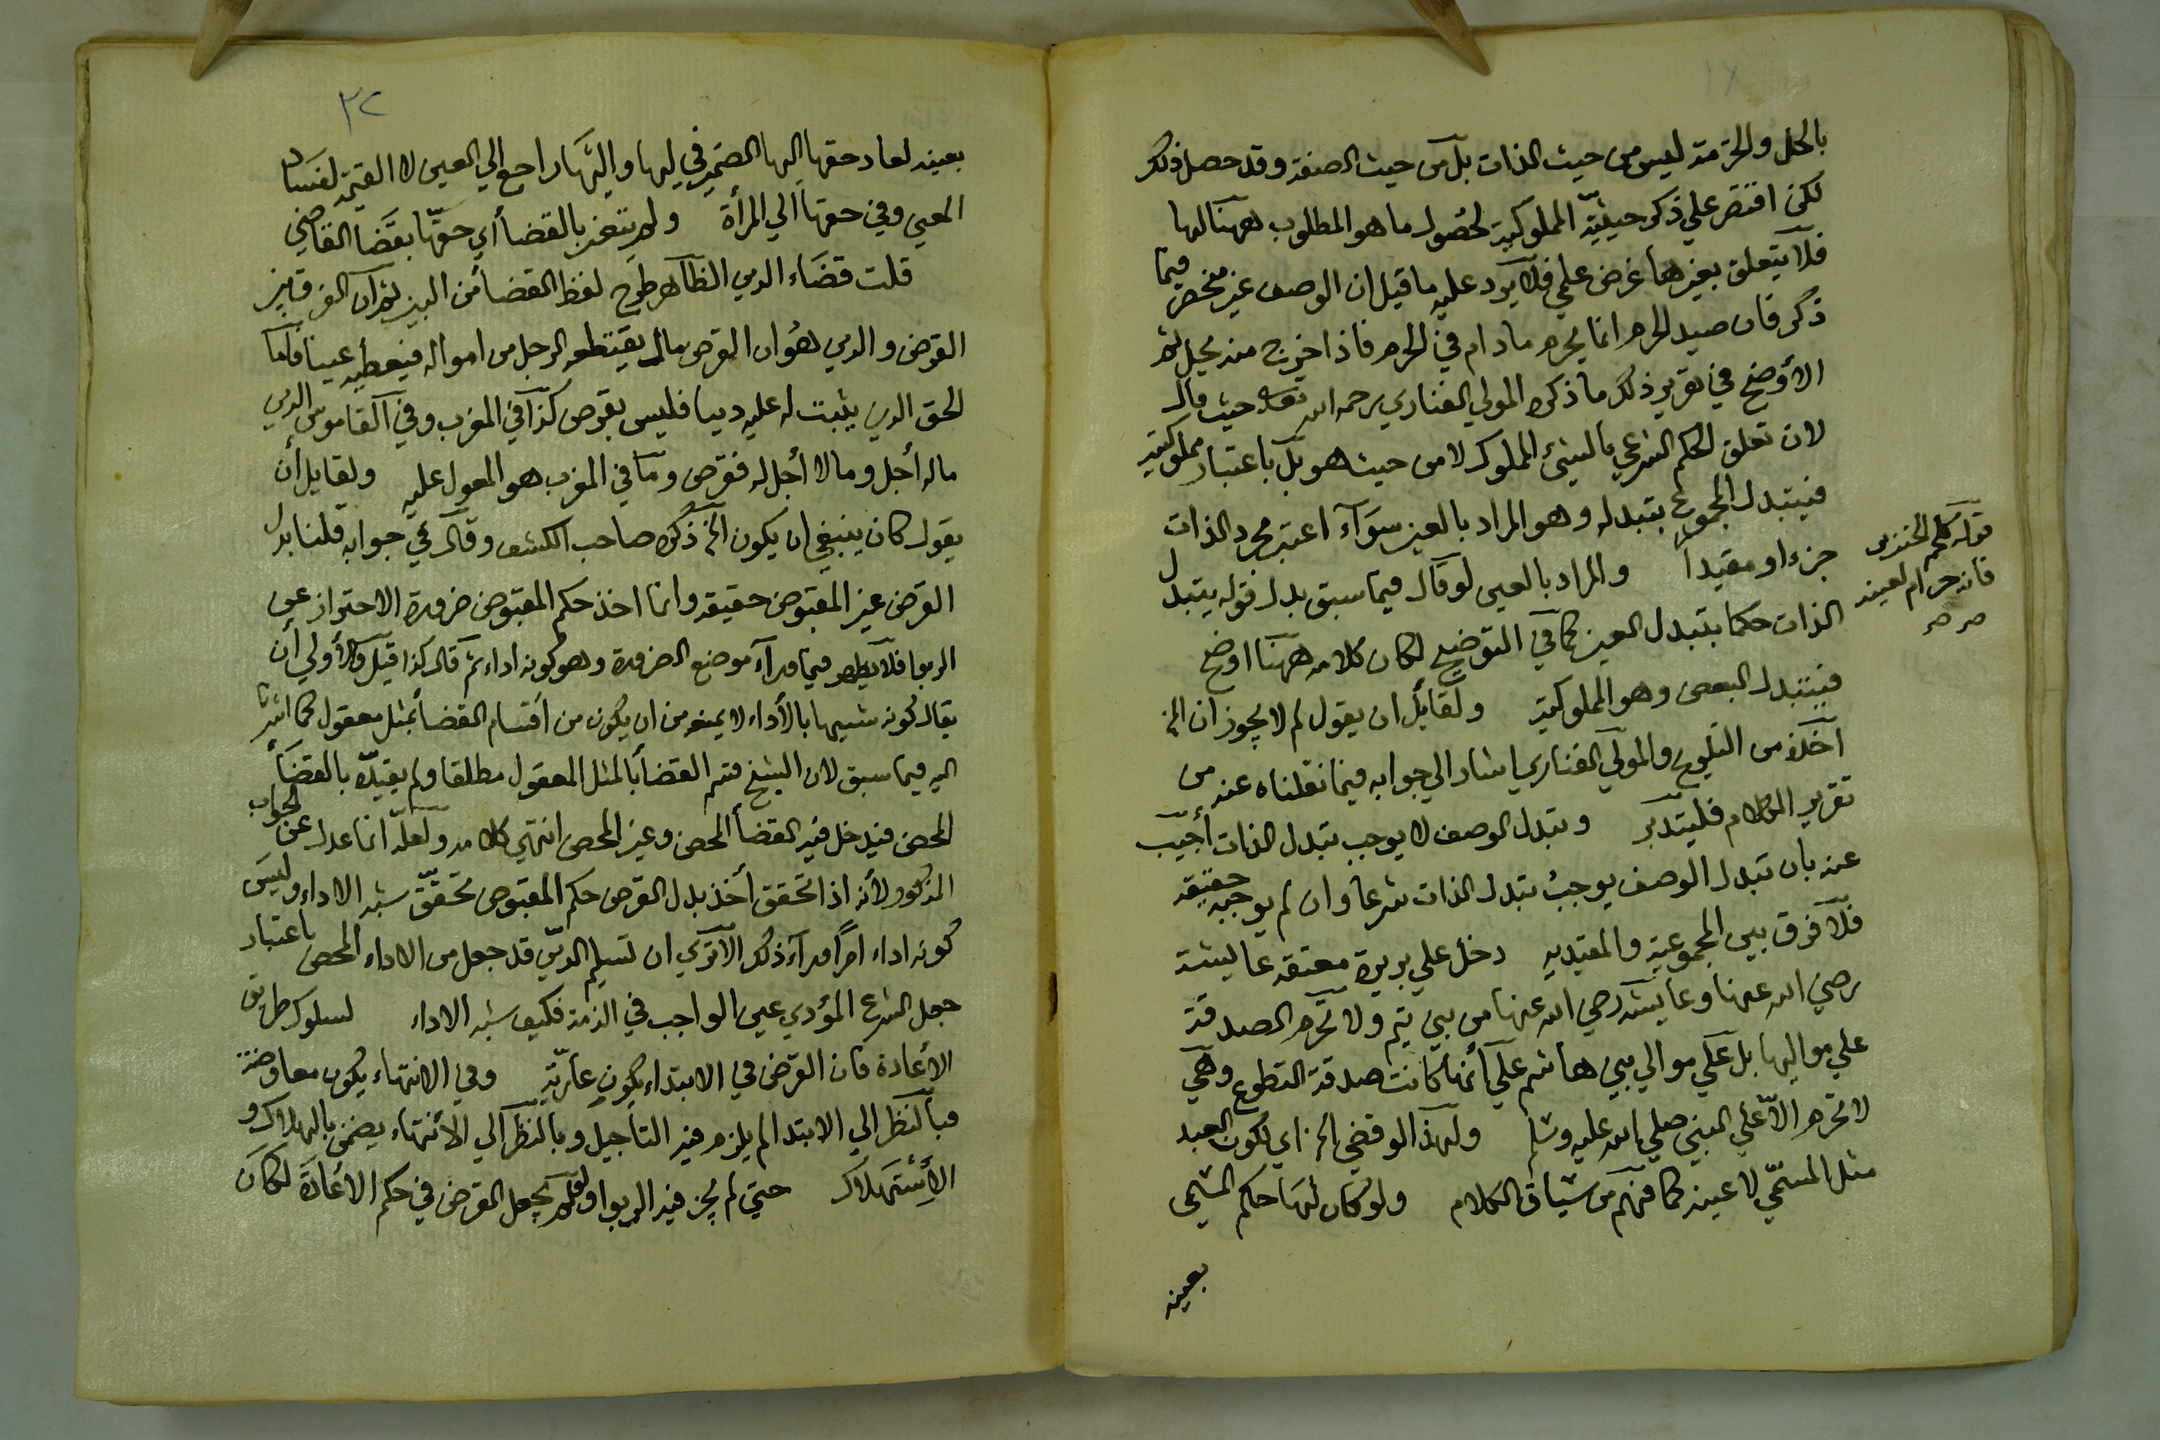 بالحل والحرمة ليس من حيث الذات بل من حيث الصفة وقد حصل ذلك
لكن اقتصر علي ذكر حيثيّة المملوكية لحصول ما هو المطلوب ههنا لها
فلا يتعلق بغيرها غرض علمي فلا يرد عليه ما قيل ان الوصف غير منحصر فيما
ذكر فان صيد الحرم انما يحرم ما دام في الحرم فاذا اخرج منه يحل ثم
الأوضح في تقرير ذلك ما ذكره المولي الفناري رحمه الله تعالى حيث قال
لان تعلق الحكم الشرعي بالشيء المملوك لا من حيث هو بل باعتبار مملوكيته
فيتبدل المجموع بتبدله وهو المراد بالعين سوآء اعتبر مجرد الذات
جزءا او مقيدا والمراد بالعين لو قال فيما سبق بدل قوله يتبدل
الذات حكما بتبدل العين كما في التوضيح لكان كلامه ههنا اوضح
فيتبدل البعض وهو المملوكية ولقائل ان يقول لم لا يجوز ان الخ
اخذه من التلويح والمولي الفناري اشار الي جوابه فيما نقلناه عنه من
تقرير الكلام فليتدبر وتبدل الوصف لا يوجب تبدل الذات أجيب
عنه بان تبدل الوصف يوجب تبدل الذات شرعا وان لم يوجبه حقيقة
فلا فرق بين المجموعية والمقيدية دخل علي بريرة معتقة عايشة
رضي الله عنها وعايشه رضي الله عنها من بني تيم ولا تحرم الصدقة
علي مواليها بل علي موالي بني هاشم علي أنها كانت صدقة التطوع وهي
لا تحرم الاّ علي النبي صلي الله عليه وسلم ولهذا لو قضي الخ اي لكون العبد
مثل المسمّي لا عينه كما فهم من سياق الكلام ولو كان لها حكم المسمي
بعينه
قوله كلحم الخنزير
فانه حرام لعينه
٣٢
بعينه لعاد حقها اليها الضمير في لها واليها راجع إلي العين لا القيمة لفساد
المعني وفي حقها الي المرأة ولم يتغير بالقضا أي حقّها بقضا القاضي
قلت قضاء الدين الظاهر طرح لفظ القضا من البين ثم ان الفرق بين
القرض والدين هو ان القرض مال يقتطعه الرجل من امواله فيعطيه عينا فاما
الحق الذي يثبت له عليه دينا فليس بقرض كذا في المغرب وفي القاموس الدين
ماله أجل وما لا أجل له فقرض وما في المغرب هو المعول عليه ولقايل أن
يقول كان ينبغي ان يكون الخ ذكره صاحب الكشف وقال في جوابه قلنا بدل
القرض غير المقبوض حقيقه وانما اخذ حكم المقبوض ضرورة الاحتراز عن
الربوا فلا يظهر فيما ورآء موضع الضرورة وهو كونه اداء ثم قال كذا قيل والأولي أن
يقال كونه شبيها بالأداء لا يمنع من ان يكون من أقسام القضا بمثل معقول كما اشرنا
اليه فيما سبق لان الشيخ قسم القضا بالمثل المعقول مطلقا ولم يقيدّه بالقضأ
المحض فيدخل فيه القضأ المحض وغير المحض انتهي كلامه ولعلّه انما عدل عن الجواب
المذكور لأنه اذا تحقق أخذ بدل القرض حكم المقبوض تحقّق شبه الاداء وليس
كونه اداء امراً ورآء ذلك الا تري ان تسليم الدين قد جعل من الاداء المحض باعتبار
جعل الشرع المؤدي عين الواجب في الذمة فكيف شبه الاداء لسلوك طريق
الاعادة فان القرض في الابتداء يكون عاريّة وفي الانتهاء يكون معاوضة
فبالنظر الي الابتدا لم يلزم فيه التأجيل وبالنظر الي الأنتهاء يضمن بالهلاك و
الأستهلاك حتي لم يجز فيه الربوا ولو لم يجعل القرض في حكم الاعادة لكان